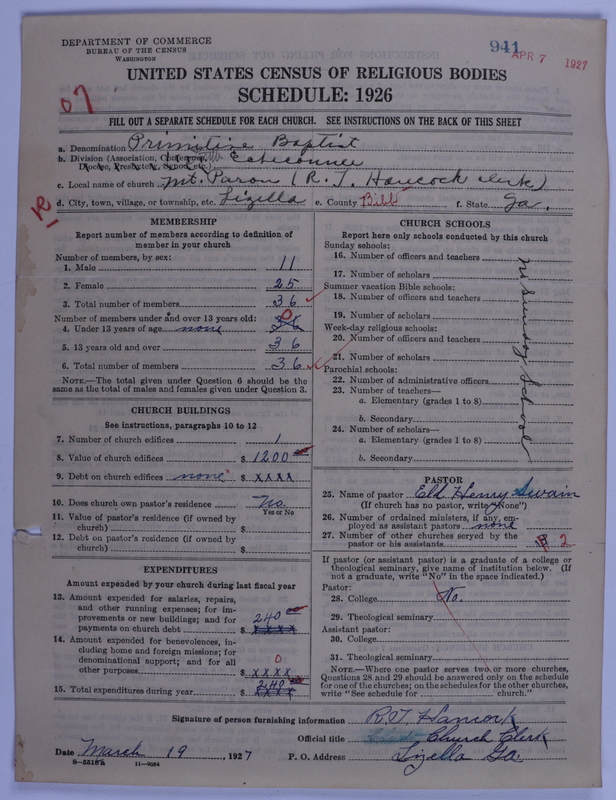 DEPARTMENT OF COMMERCE
BUREAU OF THE CENSUS
WASHINGTON
941
APR 7 1927
UNITED STATES CENSUS OF RELIGIOUS BODIES
SCHEDULE: 1926
07
FILL OUT A SEPARATE SCHEDULE FOR EACH CHURCH. SEE INSTRUCTIONS ON THE BACK OF THIS SHEET
a. Denomination Primitive Baptist
b. Division (Association, Conference, Echeconnee
Diocese, Presbytery, Synod, etc.)
c. Local name of church Mt. Paron (R. T. Hancock clerk)
d. City, town, village, or township, etc. Lizella e. County Bibb f. State Ga.
MEMBERSHIP
Report number of members according to definition of
member in your church
Number of members, by sex:
1. Male 11
2. Female 25
3. Total number of members 36
Number of members under and over 13 years old: 0
4. Under 13 years of age none
5. 13 years old and over 36
6. Total number of members 36
NOTE.—The total given under Question 6 should be
same as the total of males and females given under Question 3.
CHURCH BUILDINGS
See instructions, paragraphs 10 to 12
7. Number of church edifices 1
8. Value of church edifices $ 1200 00
9. Debt on church edifices none $ XXXX
10. Does church own pastor's residence No.
Yes or No
11. Value of pastor's residence (if owned by
church) $
12. Debt on pastor's residence (if owned by
church) $
EXPENDITURES
Amount expended by your church during last fiscal year
13. Amount expended for salaries, repairs,
and other running expenses; for im-
provements or new buildings; and for 240 00
payments on church debt $ XXXX
14. Amount expended for benevolences, in-
cluding home and foreign missions; for
denominational support; and for all 0
other purposes $ XXXX
15. Total expenditures during year $ 240 00
CHURCH SCHOOLS
Report here only schools conducted by this church
Sunday schools:
16. Number of officers and teachers
17. Number of scholars
Summer vacation Bible schools:
18. Number of officers and teachers
19. Number of scholars
Week-day religious schools:
20. Number of officers and teachers
21. Number of scholars
Parochial schools:
22. Number of administrative officers
23. Number of teachers—
a. Elementary (grades 1 to 8)
b. Secondary
24. Number of scholars—
a. Elementary (grades 1 to 8)
b. Secondary
Sunday School
PASTOR
25. Name of pastor Eld Henry Swain
(If church has no pastor, write "None")
26. Number of ordained ministers, if any, em-
ployed as assistant pastors none
27. Number of other churches served by the
pastor or his assistants 2
If pastor (or assistant pastor) is a graduate of a college or
theological seminary, give name of institution below. (If
not a graduate, write "No" in the space indicated.)
Pastor:
28. College No.
29. Theological seminary
Assistant pastor:
30. College
31. Theological seminary
NOTE.—Where one pastor serves two or more churches,
Questions 28 and 29 should be answered only on the schedule
for one of the churches; on the schedules for the other churches,
write "See schedule for church."
Signature of person furnishing information R. T. Hancock
Official title Church Clerk
Date March 19, 1927 P. O. Address Lizella Ga.
8—5518b 11—9024